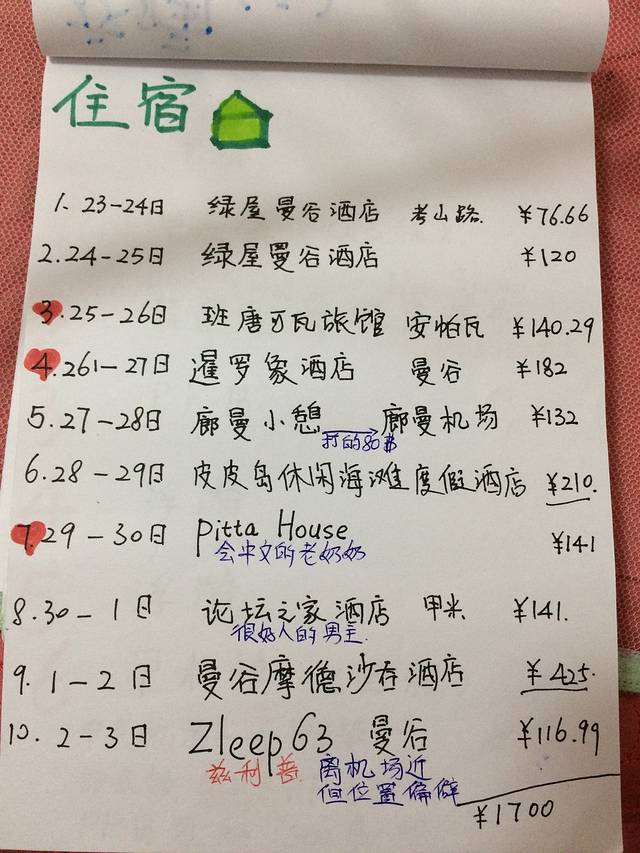 住宿
1. 23-24日 绿屋曼谷酒店 考山路. ¥76.66
2.24-25日 绿屋曼谷酒店 ¥120
3.25-26日 班唐可瓦旅馆 安帕瓦 ¥140.29
4.261-27日 暹罗象酒店 曼谷 ¥182
5.27-28日 廊曼小憩 → 廊曼机场 ¥132
打的80铢
6.28-29日 皮皮岛休闲海滩度假酒店 ¥210.
7.29-30日 Pitta House ¥141
会中文的老奶奶
8.30-1日 论坛之家酒店 甲米 ¥141.
很好人的男主.
9.1-2日 曼谷摩德沙吞酒店 ¥425.
10.2-3日 Zleep63 曼谷 ¥116.99
兹利普 离机场近
但位置偏僻
¥1700